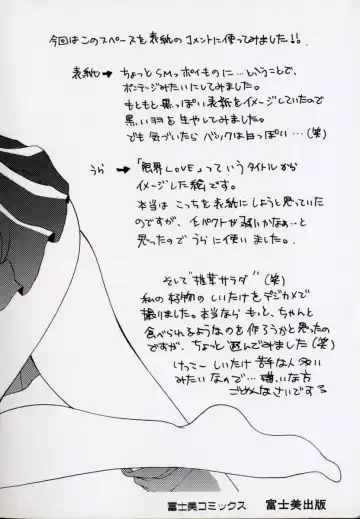 今回はこのスペースを表紙のコメントに使ってみました!!.
表紙 → ちょっとSMっポイものに…ということで、
ボンテージみたいにしてみました。
もともと黒っぽい表紙をイメージしていたので
黒いヨヨを生やしてみました。
でも気づいたらバックは白っぽい…(笑)
うら → 「限界LOVE」っていうタイトルから
イメージした絵です。
本当はこっちを表紙にしようと思っていた
のですが、インパクトが弱いかなぁ…と
思ったのでうらに使いました。
そして"椎茸サラダ"(笑)
私の好物のしいたけをデジカメで
撮りました。本当ならもっと、ちゃんと
食べられるようなのを作ろうかと思ったの
ですが、ちょっと遊んでみました(笑)
けっこーしいたけ苦手な人多い
みたいなので…嫌いな方
ごめんなさいでする
富士美コミックス 富士美出版